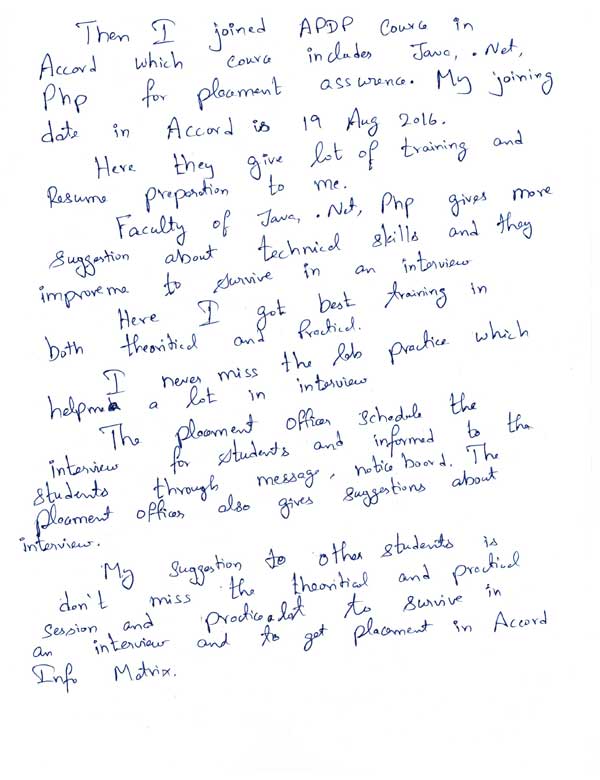 Then I joined APDP Course in
Accord which course includes Java, .Net,
Php for placment assurence. My joining
date in Accord is 19 Aug 2016.
Here they give lot of training and
Resume preparation to me.
Faculty of Java, .Net, Php gives more
suggestion about technical skills and they
improve me to survive in an interview
Here I got best training in
both theoritical and Practical.
I never miss the lab practice which
help me a lot in interview
The placment officer schedule the
interview for students and informed to the
students through message, notice board. The
placment officer also gives suggestions about
interview.
My suggestion to other students is
don't miss the theoritical and practical
session and practice a lot to survive in
an interview and to get placement in Accord
Info Matrix.